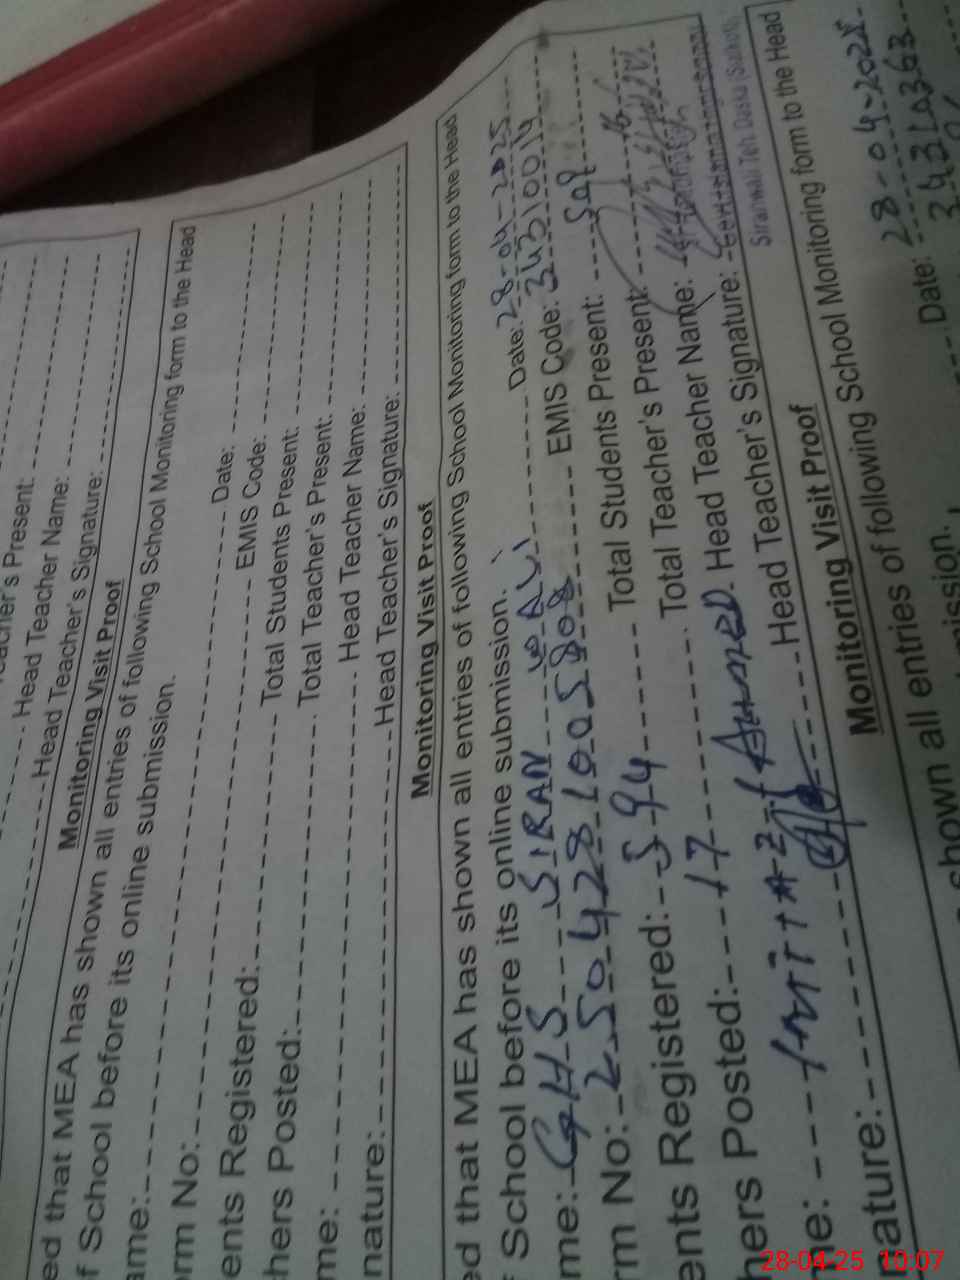 acher's Present:
Head Teacher Name:
Head Teacher's Signature:
Monitoring Visit Proof
ed that MEA has shown all entries of following School Monitoring form to the Head
f School before its online submission.
ame: Date:
orm No: EMIS Code:
ents Registered: Total Students Present:
hers Posted: Total Teacher's Present:
me: Head Teacher Name:
nature: Head Teacher's Signature:
Monitoring Visit Proof
ed that MEA has shown all entries of following School Monitoring form to the Head
School before its online submission.
me: GHS SIRAN WALI Date: 28-04-2025
rm No: 2504281005808 EMIS Code: 34310014
ents Registered: 594 Total Students Present: 509
hers Posted: 17 Total Teacher's Present: 16
me: Ahmed Head Teacher Name:
nature: Head Teacher's Signature:
Siranwali Teh. Daska
Monitoring Visit Proof
shown all entries of following School Monitoring form to the Head
mission.
Date: 28-04-2025
28-04-25 10:07